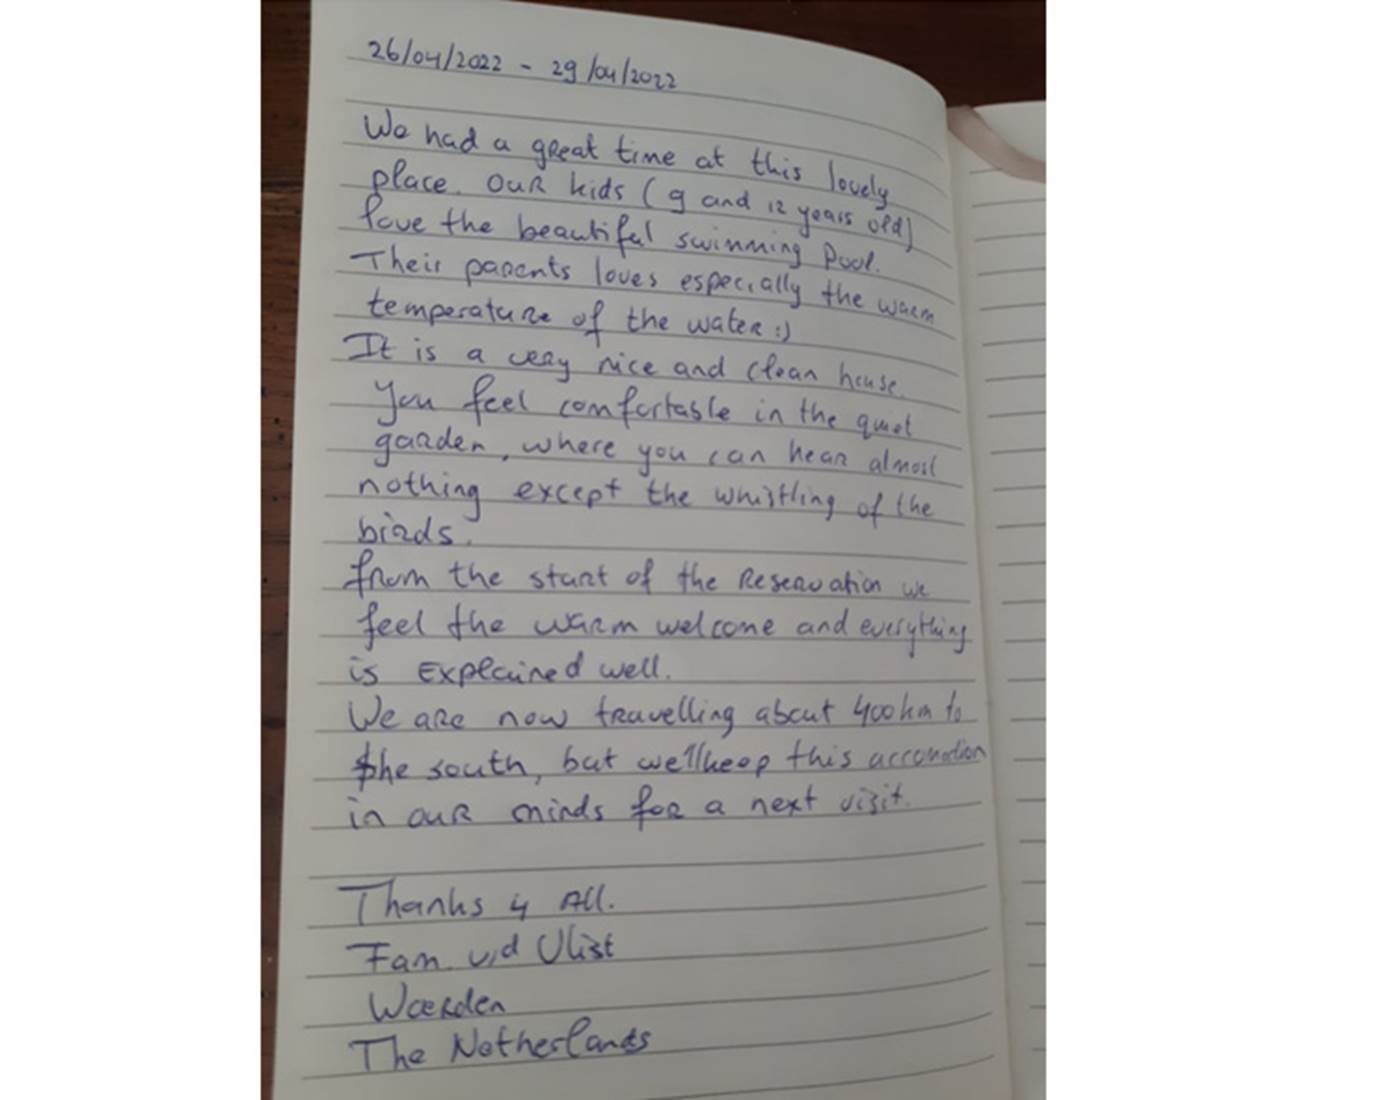 26/04/2022 - 29/04/2022
We had a great time at this lovely
place. Our kids (9 and 12 years old)
love the beautiful swimming Pool.
Their parents loves especially the warm
temperature of the water :)
It is a very nice and clean house.
You feel comfortable in the quiet
garden, where you can hear almost
nothing except the whistling of the
birds.
from the start of the Reservation we
feel the warm welcome and everything
is Explained well.
We are now travelling about 400km to
the south, but we'll keep this accomodtion
in our minds for a next visit.
Thanks 4 All.
Fam. v/d Vlist
Woerden
The Netherlands